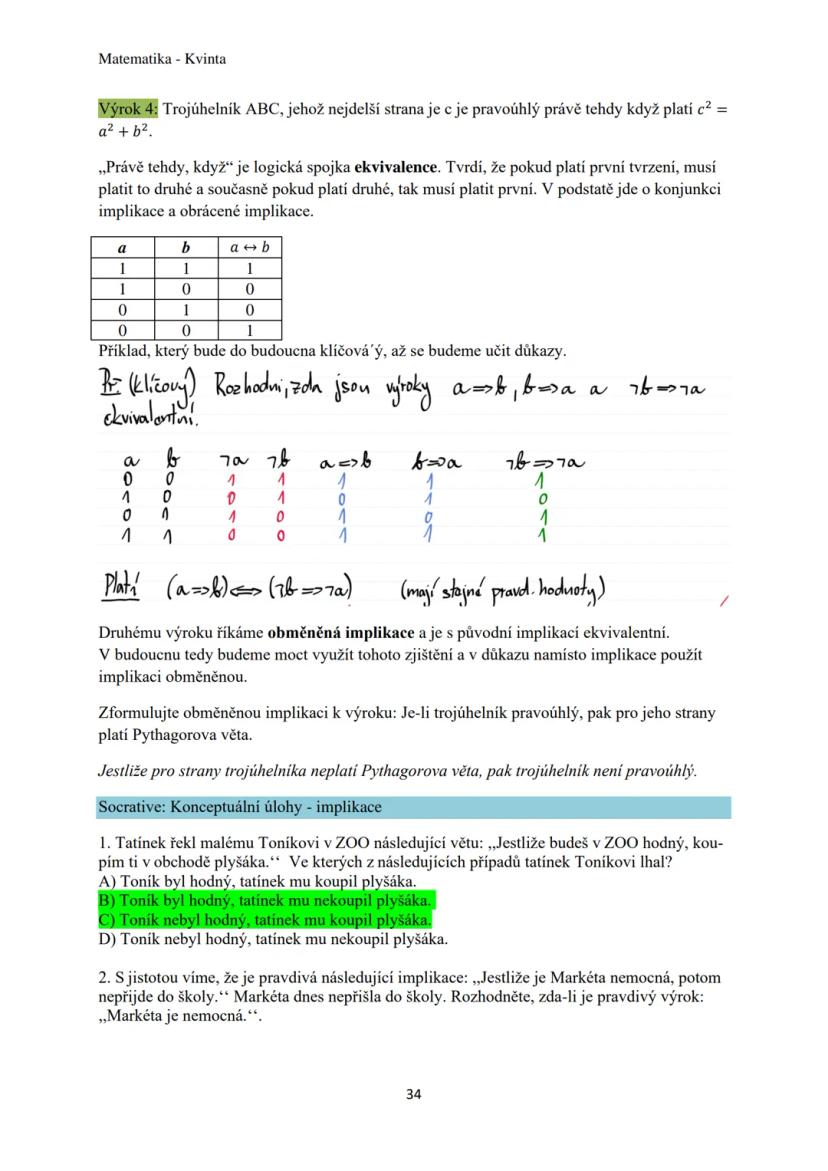 Matematika - Kvinta
Výrok 4: Trojúhelník ABC, jehož nejdelší strana je c je pravoúhlý právě tehdy když platí c² =
a² + b².
„Právě tehdy, když“ je logická spojka ekvivalence. Tvrdí, že pokud platí první tvrzení, musí
platit to druhé a současně pokud platí druhé, tak musí platit první. V podstatě jde o konjunkci
implikace a obrácené implikace.
a b a ↔ b
1 1 1
1 0 0
0 1 0
0 0 1
Příklad, který bude do budoucna klíčová´ý, až se budeme učit důkazy.
Př (klíčový) Rozhodni, zda jsou výroky a ⇒ b, b ⇒ a a ¬b ⇒ ¬a
ekvivalentní.
a b ¬a ¬b a ⇒ b b ⇒ a ¬b ⇒ ¬a
0 0 1 1 1 1 1
1 0 0 1 0 1 0
0 1 1 0 1 0 1
1 1 0 0 1 1 1
Platí (a ⇒ b) ⇔ (¬b ⇒ ¬a) (mají stejné pravd. hodnoty)
Druhému výroku říkáme obměněná implikace a je s původní implikací ekvivalentní.
V budoucnu tedy budeme moct využít tohoto zjištění a v důkazu namísto implikace použít
implikaci obměněnou.
Zformulujte obměněnou implikaci k výroku: Je-li trojúhelník pravoúhlý, pak pro jeho strany
platí Pythagorova věta.
Jestliže pro strany trojúhelníka neplatí Pythagorova věta, pak trojúhelník není pravoúhlý.
Socrative: Konceptuální úlohy - implikace
1. Tatínek řekl malému Toníkovi v ZOO následující větu: „Jestliže budeš v ZOO hodný, kou-
pím ti v obchodě plyšáka.“ Ve kterých z následujících případů tatínek Toníkovi lhal?
A) Toník byl hodný, tatínek mu koupil plyšáka.
B) Toník byl hodný, tatínek mu nekoupil plyšáka.
C) Toník nebyl hodný, tatínek mu koupil plyšáka.
D) Toník nebyl hodný, tatínek mu nekoupil plyšáka.
2. S jistotou víme, že je pravdivá následující implikace: „Jestliže je Markéta nemocná, potom
nepřijde do školy.“ Markéta dnes nepřišla do školy. Rozhodněte, zda-li je pravdivý výrok:
„Markéta je nemocná.“.
34